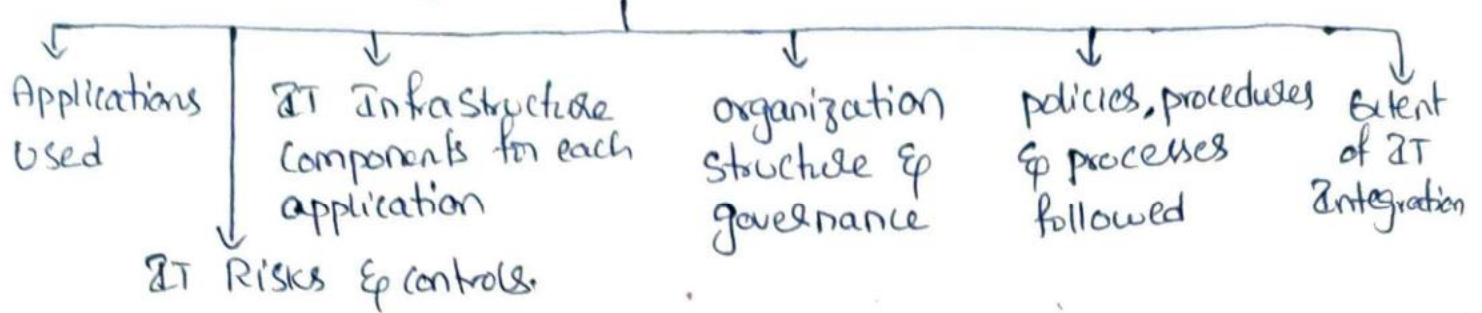 Applications
Used
IT Infrastructure
components for each
application
organization
structure &
governance
policies, procedures
& processes
followed
Extent
of IT
Integration
IT Risks & controls.